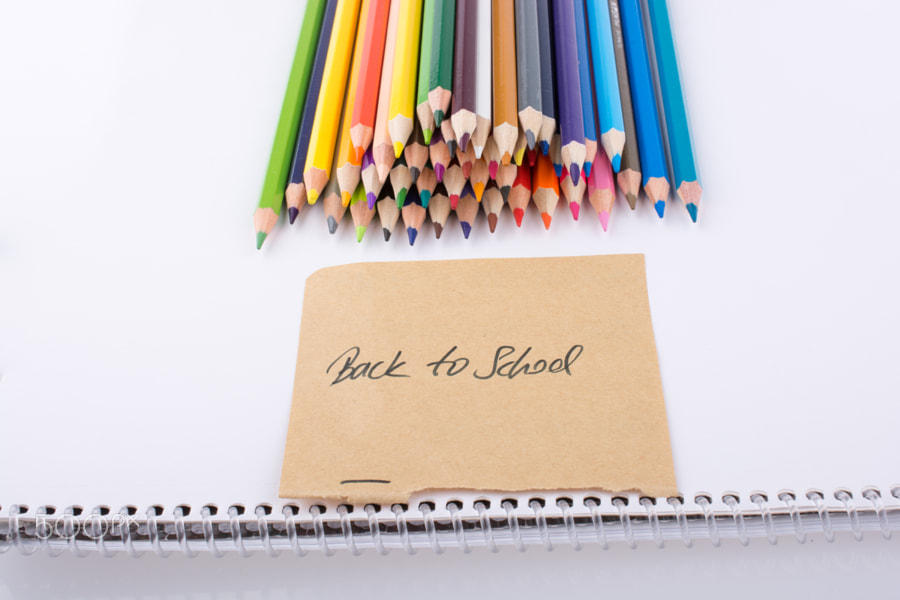 Back to School
500PX